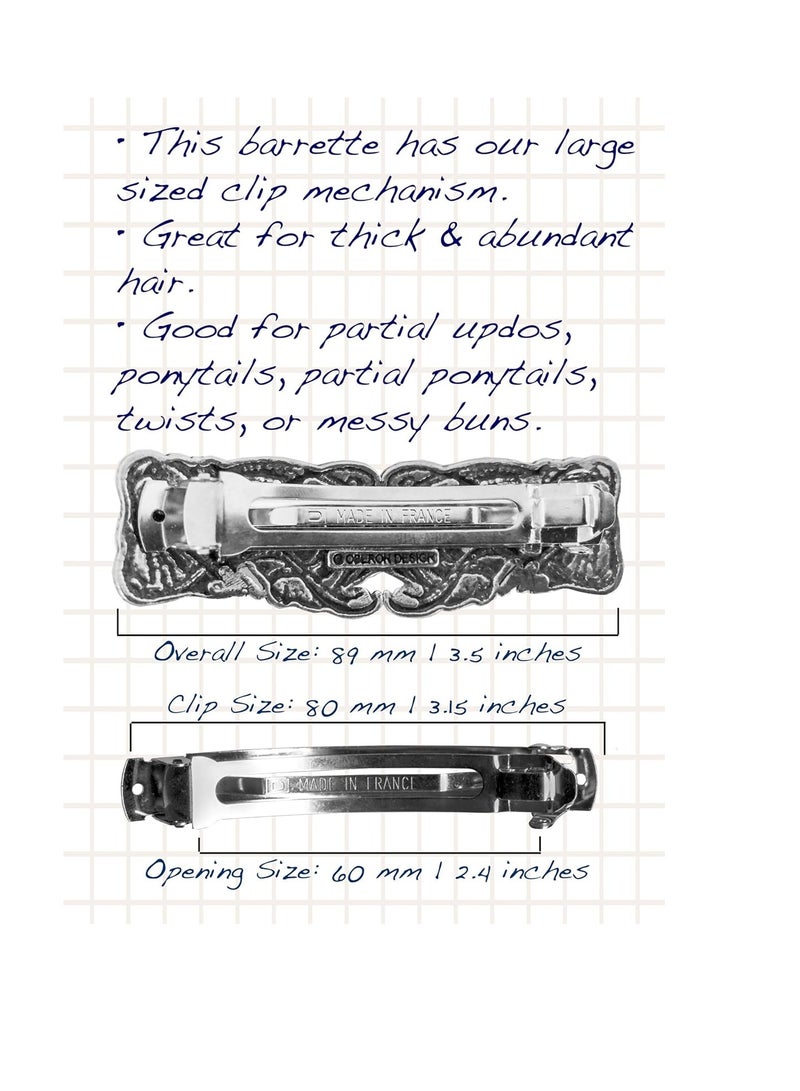 · This barrette has our large
sized clip mechanism.
· Great for thick & abundant
hair.
· Good for partial updos,
ponytails, partial ponytails,
twists, or messy buns.
MADE IN FRANCE
© OBERON DESIGN
Overall Size: 89 mm | 3.5 inches
Clip Size: 80 mm | 3.15 inches
MADE IN FRANCE
Opening Size: 60 mm | 2.4 inches